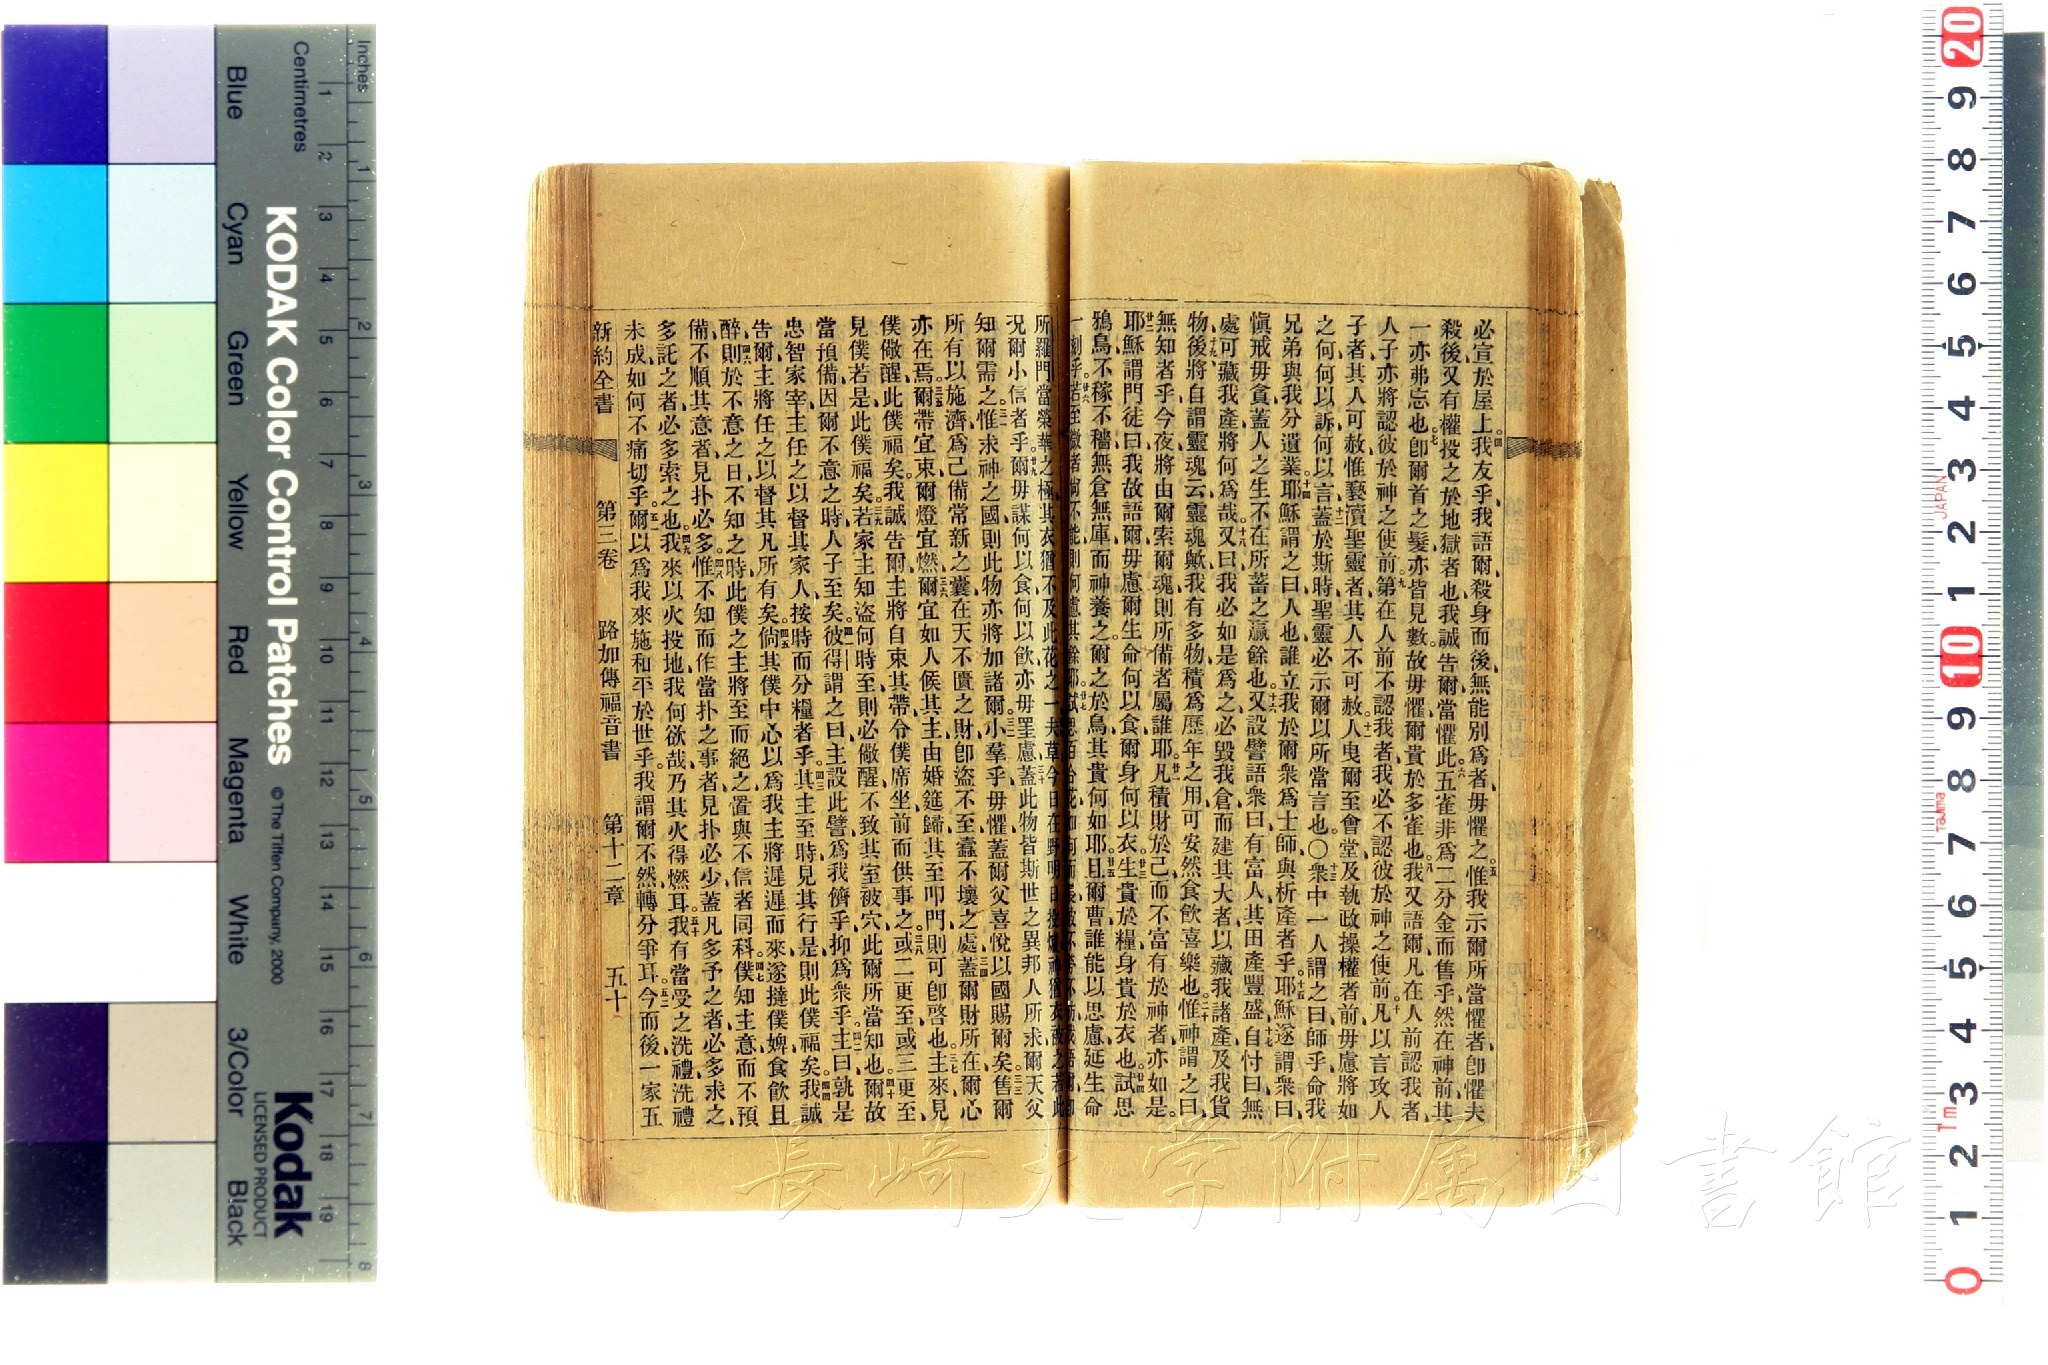 必宣於屋上。四我友乎、我語爾、殺身而後、無能別爲者、毋懼之、五惟我示爾所當懼者、卽懼夫
殺後、又有權投之於地獄者也、我誠告爾、當懼此。六五雀非爲二分金而售乎、然在神前、其
一亦弗忘也。七卽爾首之髮、亦皆見數、故毋懼、爾貴於多雀也、八我又語爾、凡在人前認我者、
人子亦將認彼於神之使前。九第在人前不認我者、我必不認彼於神之使前、十凡以言攻人
子者、其人可赦、惟褻瀆聖靈者、其人不可赦、十一人曳爾至會堂、及執政操權者前、毋慮將如
之何、何以訴、何以言、十二蓋於斯時、聖靈必示爾以所當言也。〇十三衆中一人謂之曰、師乎、命我
兄弟與我分遺業、十四耶穌謂之曰、人也、誰立我於爾衆爲士師、與析產者乎、十五耶穌遂謂衆曰、
愼戒毋貪、蓋人之生、不在所蓄之贏餘也、十六又設譬語衆曰、有富人、其田產豐盛、十七自忖曰、無
處可藏我產、將何爲哉、十八又曰、我必如是爲之、必毀我倉、而建其大者、以藏我諸產、及我貨
物、十九後將自謂靈魂云、靈魂歟、我有多物積爲歷年之用、可安然食飲喜樂也、二十惟神謂之曰、
無知者乎、今夜將由爾索爾魂、則所備者屬誰耶、廿一凡積財於己、而不富有於神者、亦如是。
廿二耶穌謂門徒曰、我故語爾、毋慮爾生命何以食、爾身何以衣、廿三生貴於糧、身貴於衣也、廿四試思
鴉鳥、不稼不穡、無倉無庫、而神養之、爾之於鳥、其貴何如耶、廿五且爾曹誰能以思慮延生命
所羅門當榮華之極、其衣猶不及此花之一、廿八夫草今日在野、明日投爐、神猶衣被之若此、
況爾小信者乎、廿九爾毋謀何以食、何以飲、亦毋罣慮、三十蓋此物皆斯世之異邦人所求、爾天父
知爾需之、三一惟求神之國、則此物亦將加諸爾、三二小羣乎、毋懼、蓋爾父喜悅以國賜爾矣、三三售爾
所有以施濟、爲己備常新之囊、在天不匱之財、卽盜不至、蠹不壞之處、三四蓋爾財所在、爾心
亦在焉。三五爾帶宜束、爾燈宜燃、三六爾宜如人候其主由婚筵歸、其至叩門、則可卽啓也、三七主來、見
僕儆醒、此僕福矣、我誠告爾、主將自束其帶、令僕席坐、前而供事之、三八或二更至、或三更至、
見僕若是、此僕福矣、三九若家主知盜何時至、則必儆醒、不致其室被穴、此爾所當知也、四十爾故
當預備、因爾不意之時、人子至矣、四一彼得謂之曰、主設此譬、爲我儕乎、抑爲衆乎、四二主曰、孰是
忠智家宰、主任之以督其家人、按時而分糧者乎、四三其主至時、見其行是、則此僕福矣、四四我誠
告爾、主將任之以督其凡所有矣、四五倘其僕中心以爲我主將遲遲而來、遂撻僕婢、食飲且
醉、四六則於不意之日、不知之時、此僕之主將至而絕之、置與不信者同科、四七僕知主意、而不預
備、不順其意者、見扑必多、四八惟不知而作當扑之事者、見扑必少、蓋凡多予之者、必多求之、
多託之者、必多索之也、四九我來以火投地、我何欲哉、乃其火得燃耳、五十我有當受之洗禮、洗禮
未成、如何不痛切乎、五一爾以爲我來施和平於世乎、我謂爾不然、轉分爭耳、五二今而後、一家五
新約全書 第三卷 路加傳福音書 第十二章 五十
長崎大学附属図書館
Inches
Centimetres
Blue Cyan Green Yellow Red Magenta White 3/Color Black
KODAK Color Control Patches © The Tiffen Company, 2000
Kodak
LICENSED PRODUCT
1 2 3 4 5 6 7 8 9 10 11 12 13 14 15 16 17 18 19
1 2 3 4 5 6 7 8
20 9 8 7 6 5 4 3 2 1 10 9 8 7 6 5 4 3 2 1 0
JAPAN
Tajima
Tm